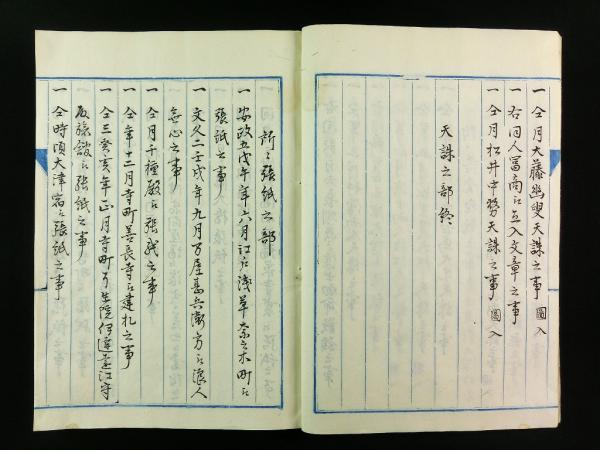 一 仝月大藤幽叟天誅之事 圖入
一 右同人冨商江立入文章之事
一 仝月松井中努天誅之事 圖入
天誅之部終
所々張紙之部
一 安政五戊午年六月江戸浅草茶之木町江
張紙之事
一 文久二壬戌年九月万屋甚兵衛方江浪人
無心之事
一 仝月千種殿江張我之事
一 仝年十二月寺町善長寺江建札之事
一 仝三癸亥年正月寺町了生院伊達遠江守
殿旅舘江張紙之事
一 仝時頃大津宿江張紙之事